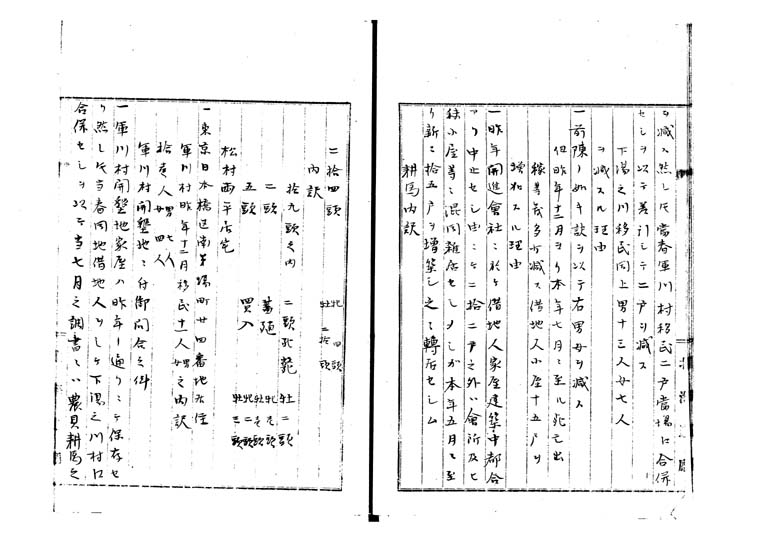 ヲ減ス然レトモ當春軍川村移民二戸當場ニ合併
セシヲ以テ差引シテ二戸ヲ減ス
下湯之川移民同上男十三人女七人
ヲ減スル理由
一前陳ノ如キ訳ヲ以テ右男女ヲ減ス
但昨年十二月ヨリ本年七月ニ至ル死亡出
稼等多少減ス借地人小屋十五戸ヲ
増加スル理由
一昨年開進會社ニ於テ借地人家屋建築中都合
アリ中止セシ由ニテ二拾二戸之外ハ會所及ヒ
秣小屋等ニ混同雑居セシメシカ本年五月ニ至
リ新ニ拾五戸ヲ増築シ之ニ轉居セシム
耕馬内訳
二拾四頭 牝 四頭 牡 二拾頭
内訳
拾九頭之内 二頭死斃 牡二頭
二頭 蕃殖 牝 頭 牡 頭
五頭 買入 牝二頭 牡三頭
松村西平居宅
一東京日本橋區南茅場町廿四番地居住
軍川村昨年十二月移民十一人男女之内訳
拾壱人 男七人 女四人
軍川村開墾地ニ付御問合之件
一軍川村開墾地家屋ハ昨年ノ通リニテ保存セ
リ然レトモ当春同地借地人ヲシテ下湯之川村ニ
合併セシヲ以テ当七月之調書ニハ農具耕馬之